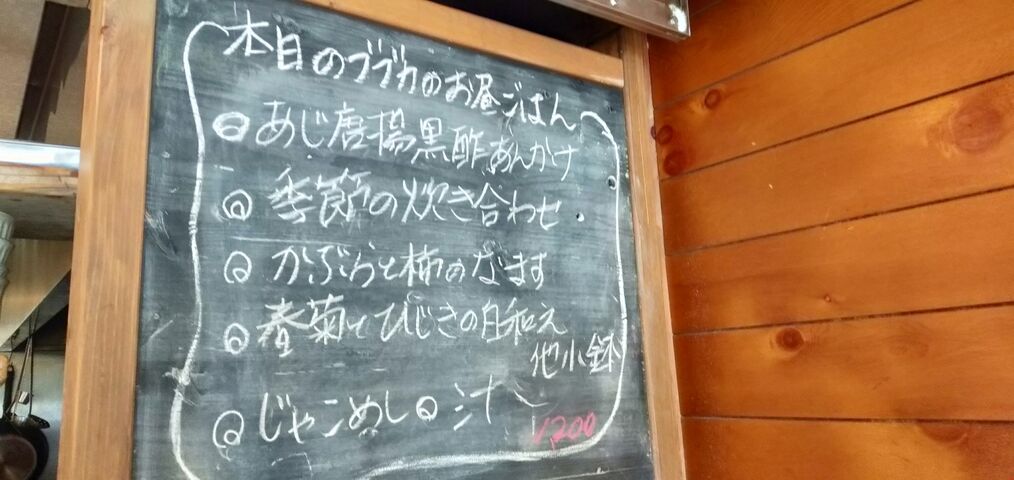 本日のブブカのお昼ごはん
◎ あじ唐揚黒酢あんかけ
◎ 季節の炊き合わせ
◎ かぶらと柿のなます
◎ 春菊とひじきの白和え
他小鉢
◎ じゃこめし◎汁
1,200